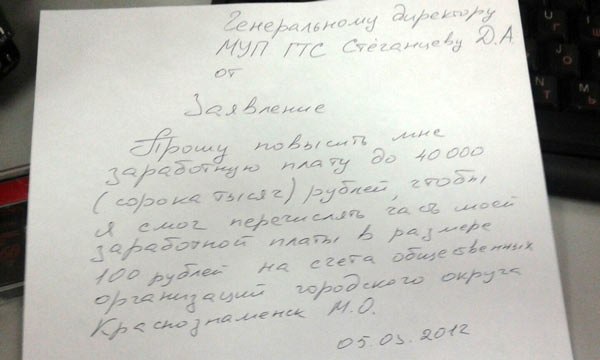 Генеральному директору
МУП ГТС Стёганцеву Д.А
от
Заявление
Прошу повысить мне
заработную плату до 40 000
(сорока тысяч) рублей, чтобы
я смог перечислять часть моей
заработной платы в размере
100 рублей на счета общественных
организаций городского округа
Краснознаменск М.О.
05.03.2012